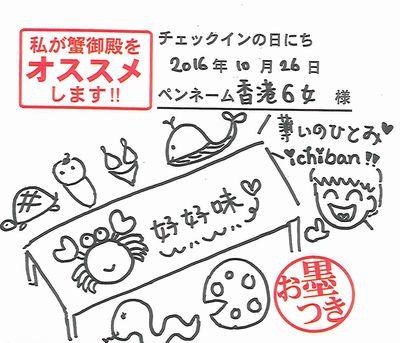 私が蟹御殿を
オススメ
します!!
チェックインの日にち
2016年10月26日
ペンネーム香港6女 様
蓴いのひとみ♥
ichiban!!
好好味♡
お墨
つき